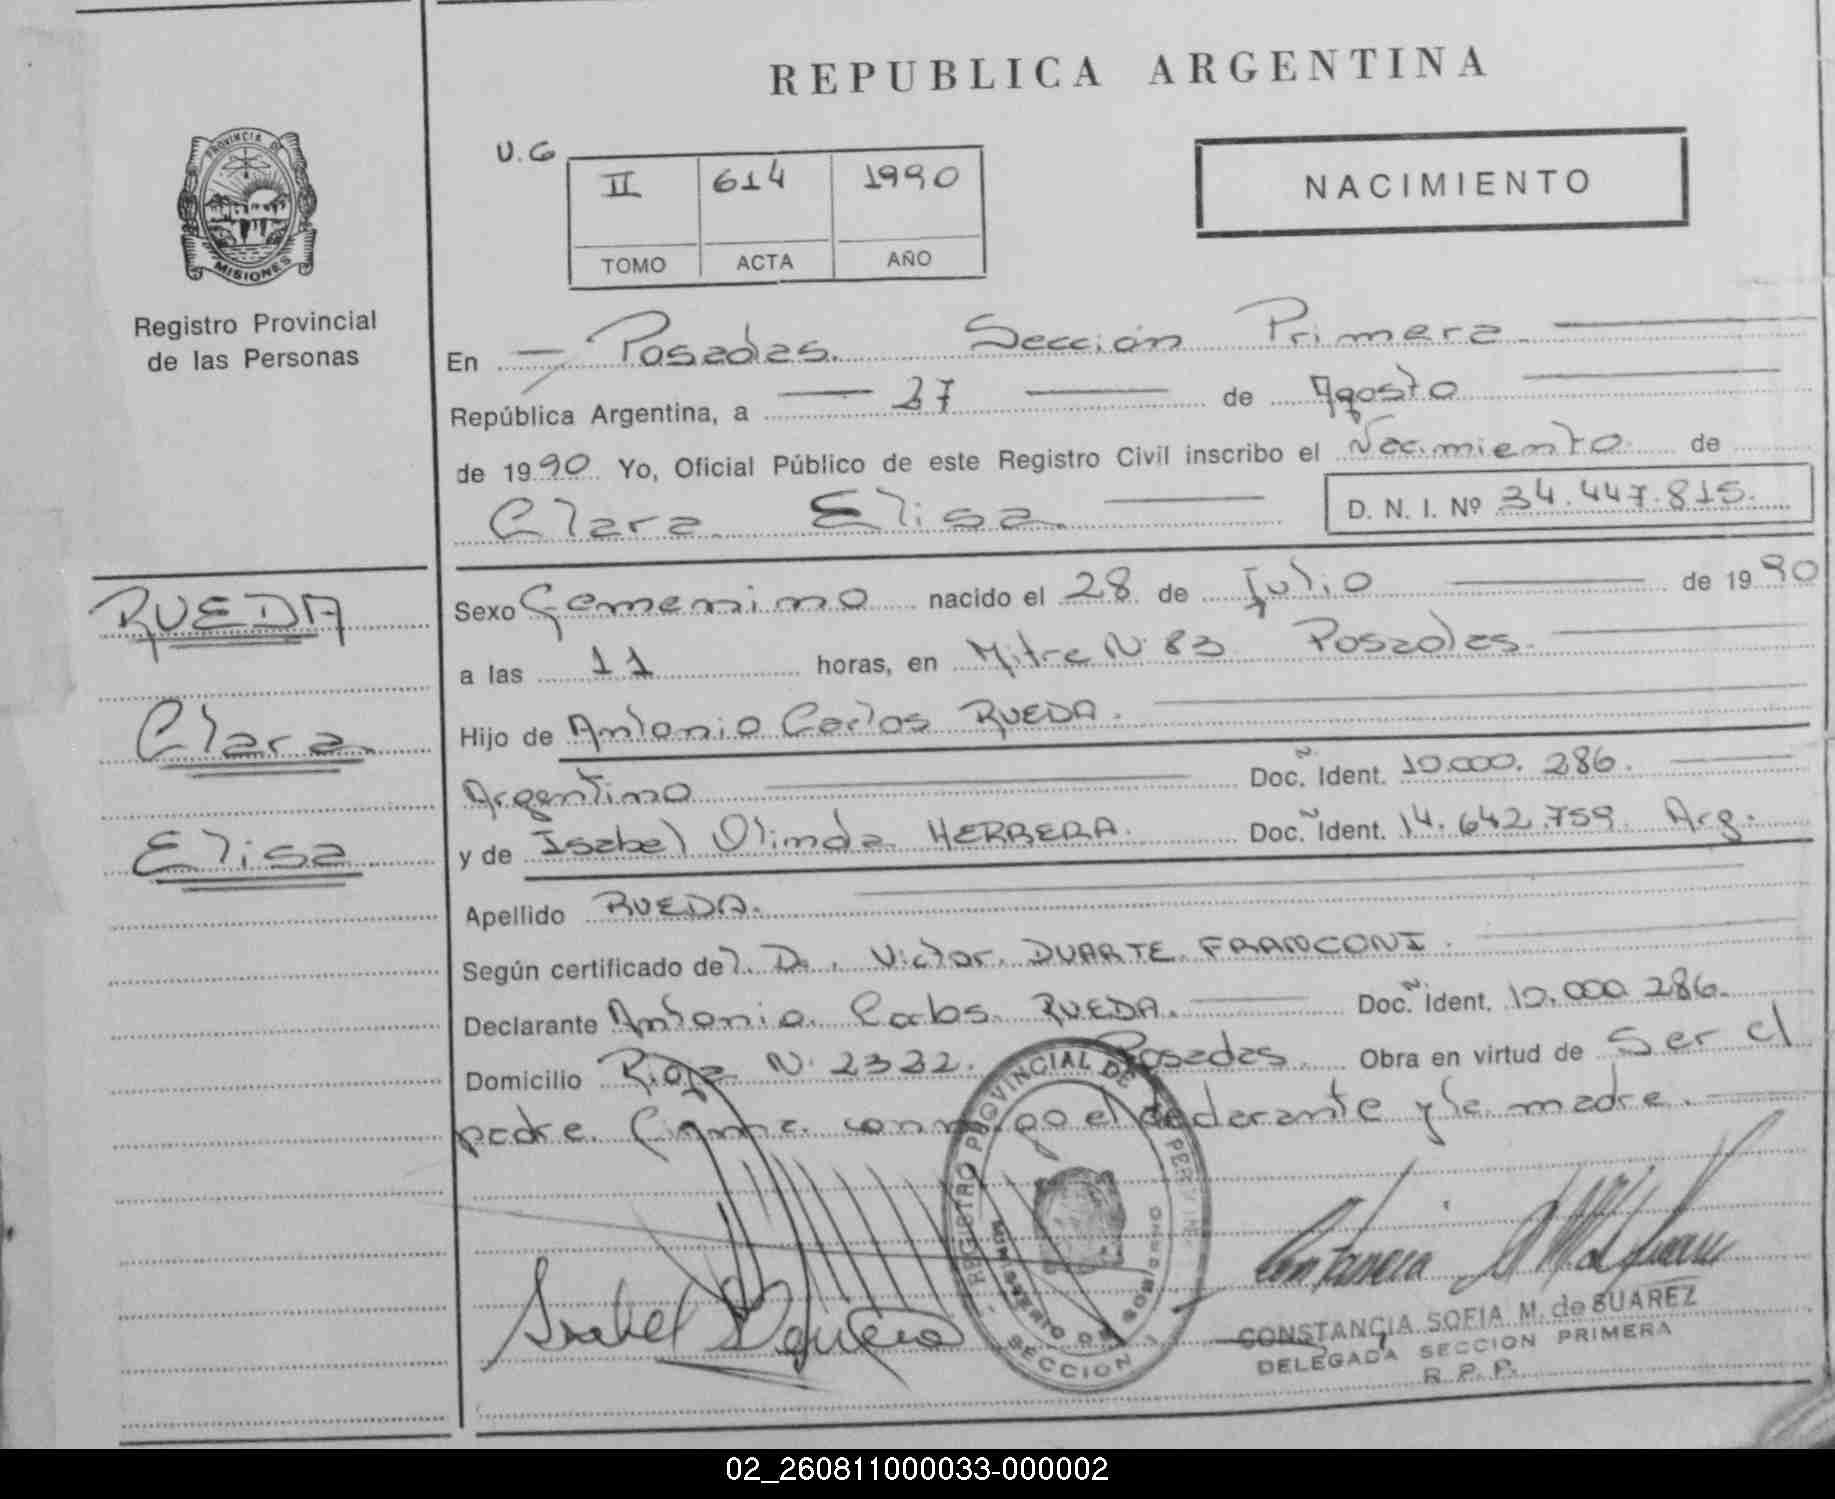 REPUBLICA ARGENTINA
PROVINCIA DE
MISIONES
Registro Provincial
de las Personas
U.G
II 614 1990
TOMO ACTA AÑO
NACIMIENTO
En Posadas. Sección Primera
República Argentina, a 27 de Agosto
de 1990 Yo, Oficial Público de este Registro Civil inscribo el Nacimiento de
Clara Elisa D. N. I. Nº 34.447.815.
RUEDA
Clara
Elisa
Sexo Femenino nacido el 28 de Julio de 1990
a las 11 horas, en Mitre N 83 Posadas.
Hijo de Antonio Carlos RUEDA.
Argentino Doc. Ident. 10.000.286.
y de Isabel Olinda HERRERA. Doc. Ident. 14.642.759 Arg.
Apellido RUEDA.
Según certificado del D. Victor DUARTE FRANCONI.
Declarante Antonio Carlos RUEDA. Doc. Ident. 10.000.286.
Domicilio Rioja N. 2322. Posadas. Obra en virtud de Ser el
padre. Firma conmigo el declarante y la madre.
REGISTRO PROVINCIAL DE
MINISTERIO DE GOBIERNO
SECCION
Isabel
Constancia
CONSTANCIA SOFIA M. de SUAREZ
DELEGADA SECCION PRIMERA
R. P. P.
02_260811000033-000002